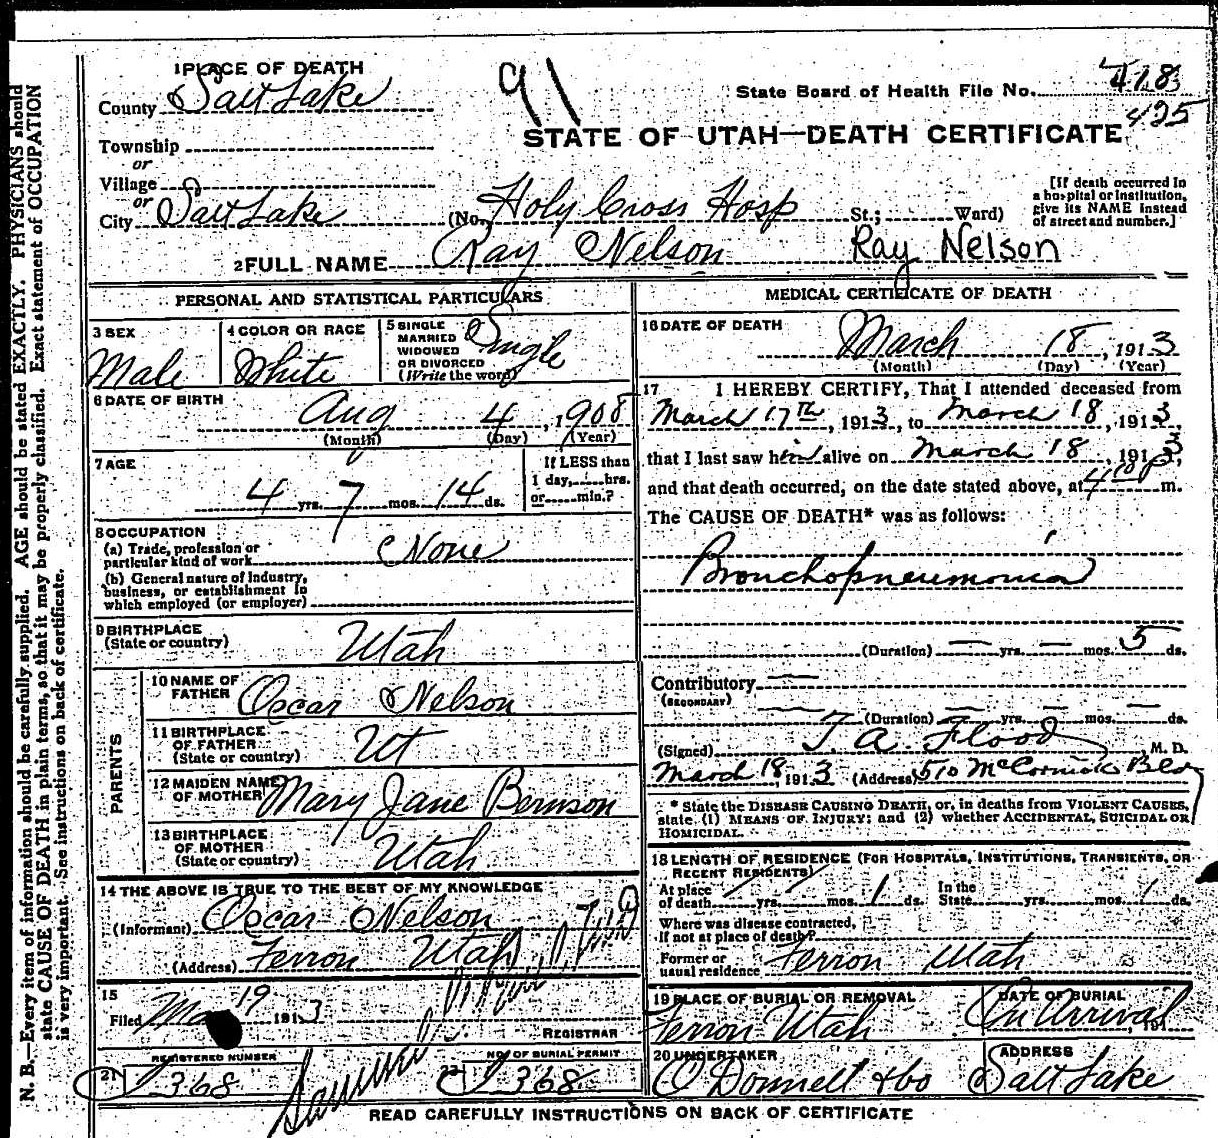 1 PLACE OF DEATH
County Salt Lake
91
State Board of Health File No. 418
425
STATE OF UTAH—DEATH CERTIFICATE
Township
or
Village
or
City Salt Lake (No. Holy Cross Hosp St.; Ward)
[If death occurred in a hospital or institution, give its NAME instead of street and number.]
2 FULL NAME Ray Nelson Ray Nelson
PERSONAL AND STATISTICAL PARTICULARS
3 SEX Male
4 COLOR OR RACE White
5 SINGLE MARRIED WIDOWED OR DIVORCED (Write the word) Single
6 DATE OF BIRTH Aug 4, 1908
(Month) (Day) (Year)
7 AGE 4 yrs. 7 mos. 14 ds.
If LESS than 1 day, hrs. or min.?
8 OCCUPATION
(a) Trade, profession or particular kind of work None
(b) General nature of industry, business, or establishment in which employed (or employer)
9 BIRTHPLACE (State or country) Utah
PARENTS
10 NAME OF FATHER Oscar Nelson
11 BIRTHPLACE OF FATHER (State or country) Ut
12 MAIDEN NAME OF MOTHER Mary Jane Bernson
13 BIRTHPLACE OF MOTHER (State or country) Utah
14 THE ABOVE IS TRUE TO THE BEST OF MY KNOWLEDGE
(Informant) Oscar Nelson
(Address) Ferron Utah
15
Filed 19 1913
REGISTRAR
REGISTERED NUMBER
21 368
NO. OF BURIAL PERMIT
22 368
MEDICAL CERTIFICATE OF DEATH
16 DATE OF DEATH
March 18, 1913
(Month) (Day) (Year)
17 I HEREBY CERTIFY, That I attended deceased from
March 17th, 1913, to March 18, 1913,
that I last saw him alive on March 18, 1913,
and that death occurred, on the date stated above, at 4 m.
The CAUSE OF DEATH* was as follows:
Bronchopneumonia
(Duration) — yrs. — mos. 5 ds.
Contributory —
(SECONDARY)
(Duration) — yrs. — mos. — ds.
(Signed) T. A. Flood, M. D.
March 18, 1913 (Address) 510 McCornick Bldg
* State the DISEASE CAUSING DEATH, or, in deaths from VIOLENT CAUSES,
state (1) MEANS OF INJURY; and (2) whether ACCIDENTAL, SUICIDAL OR
HOMICIDAL.
18 LENGTH OF RESIDENCE (FOR HOSPITALS, INSTITUTIONS, TRANSIENTS, OR
RECENT RESIDENTS)
At place of death yrs. mos. 1 ds. In the State yrs. mos. ds.
Where was disease contracted,
If not at place of death?
Former or usual residence Ferron Utah
19 PLACE OF BURIAL OR REMOVAL Ferron Utah
DATE OF BURIAL On Arrival, 191
20 UNDERTAKER O'Donnell & Co
ADDRESS Salt Lake
READ CAREFULLY INSTRUCTIONS ON BACK OF CERTIFICATE
N. B.—Every item of information should be carefully supplied. AGE should be stated EXACTLY. PHYSICIANS should
state CAUSE OF DEATH in plain terms, so that it may be properly classified. Exact statement of OCCUPATION
is very important. See instructions on back of certificate.